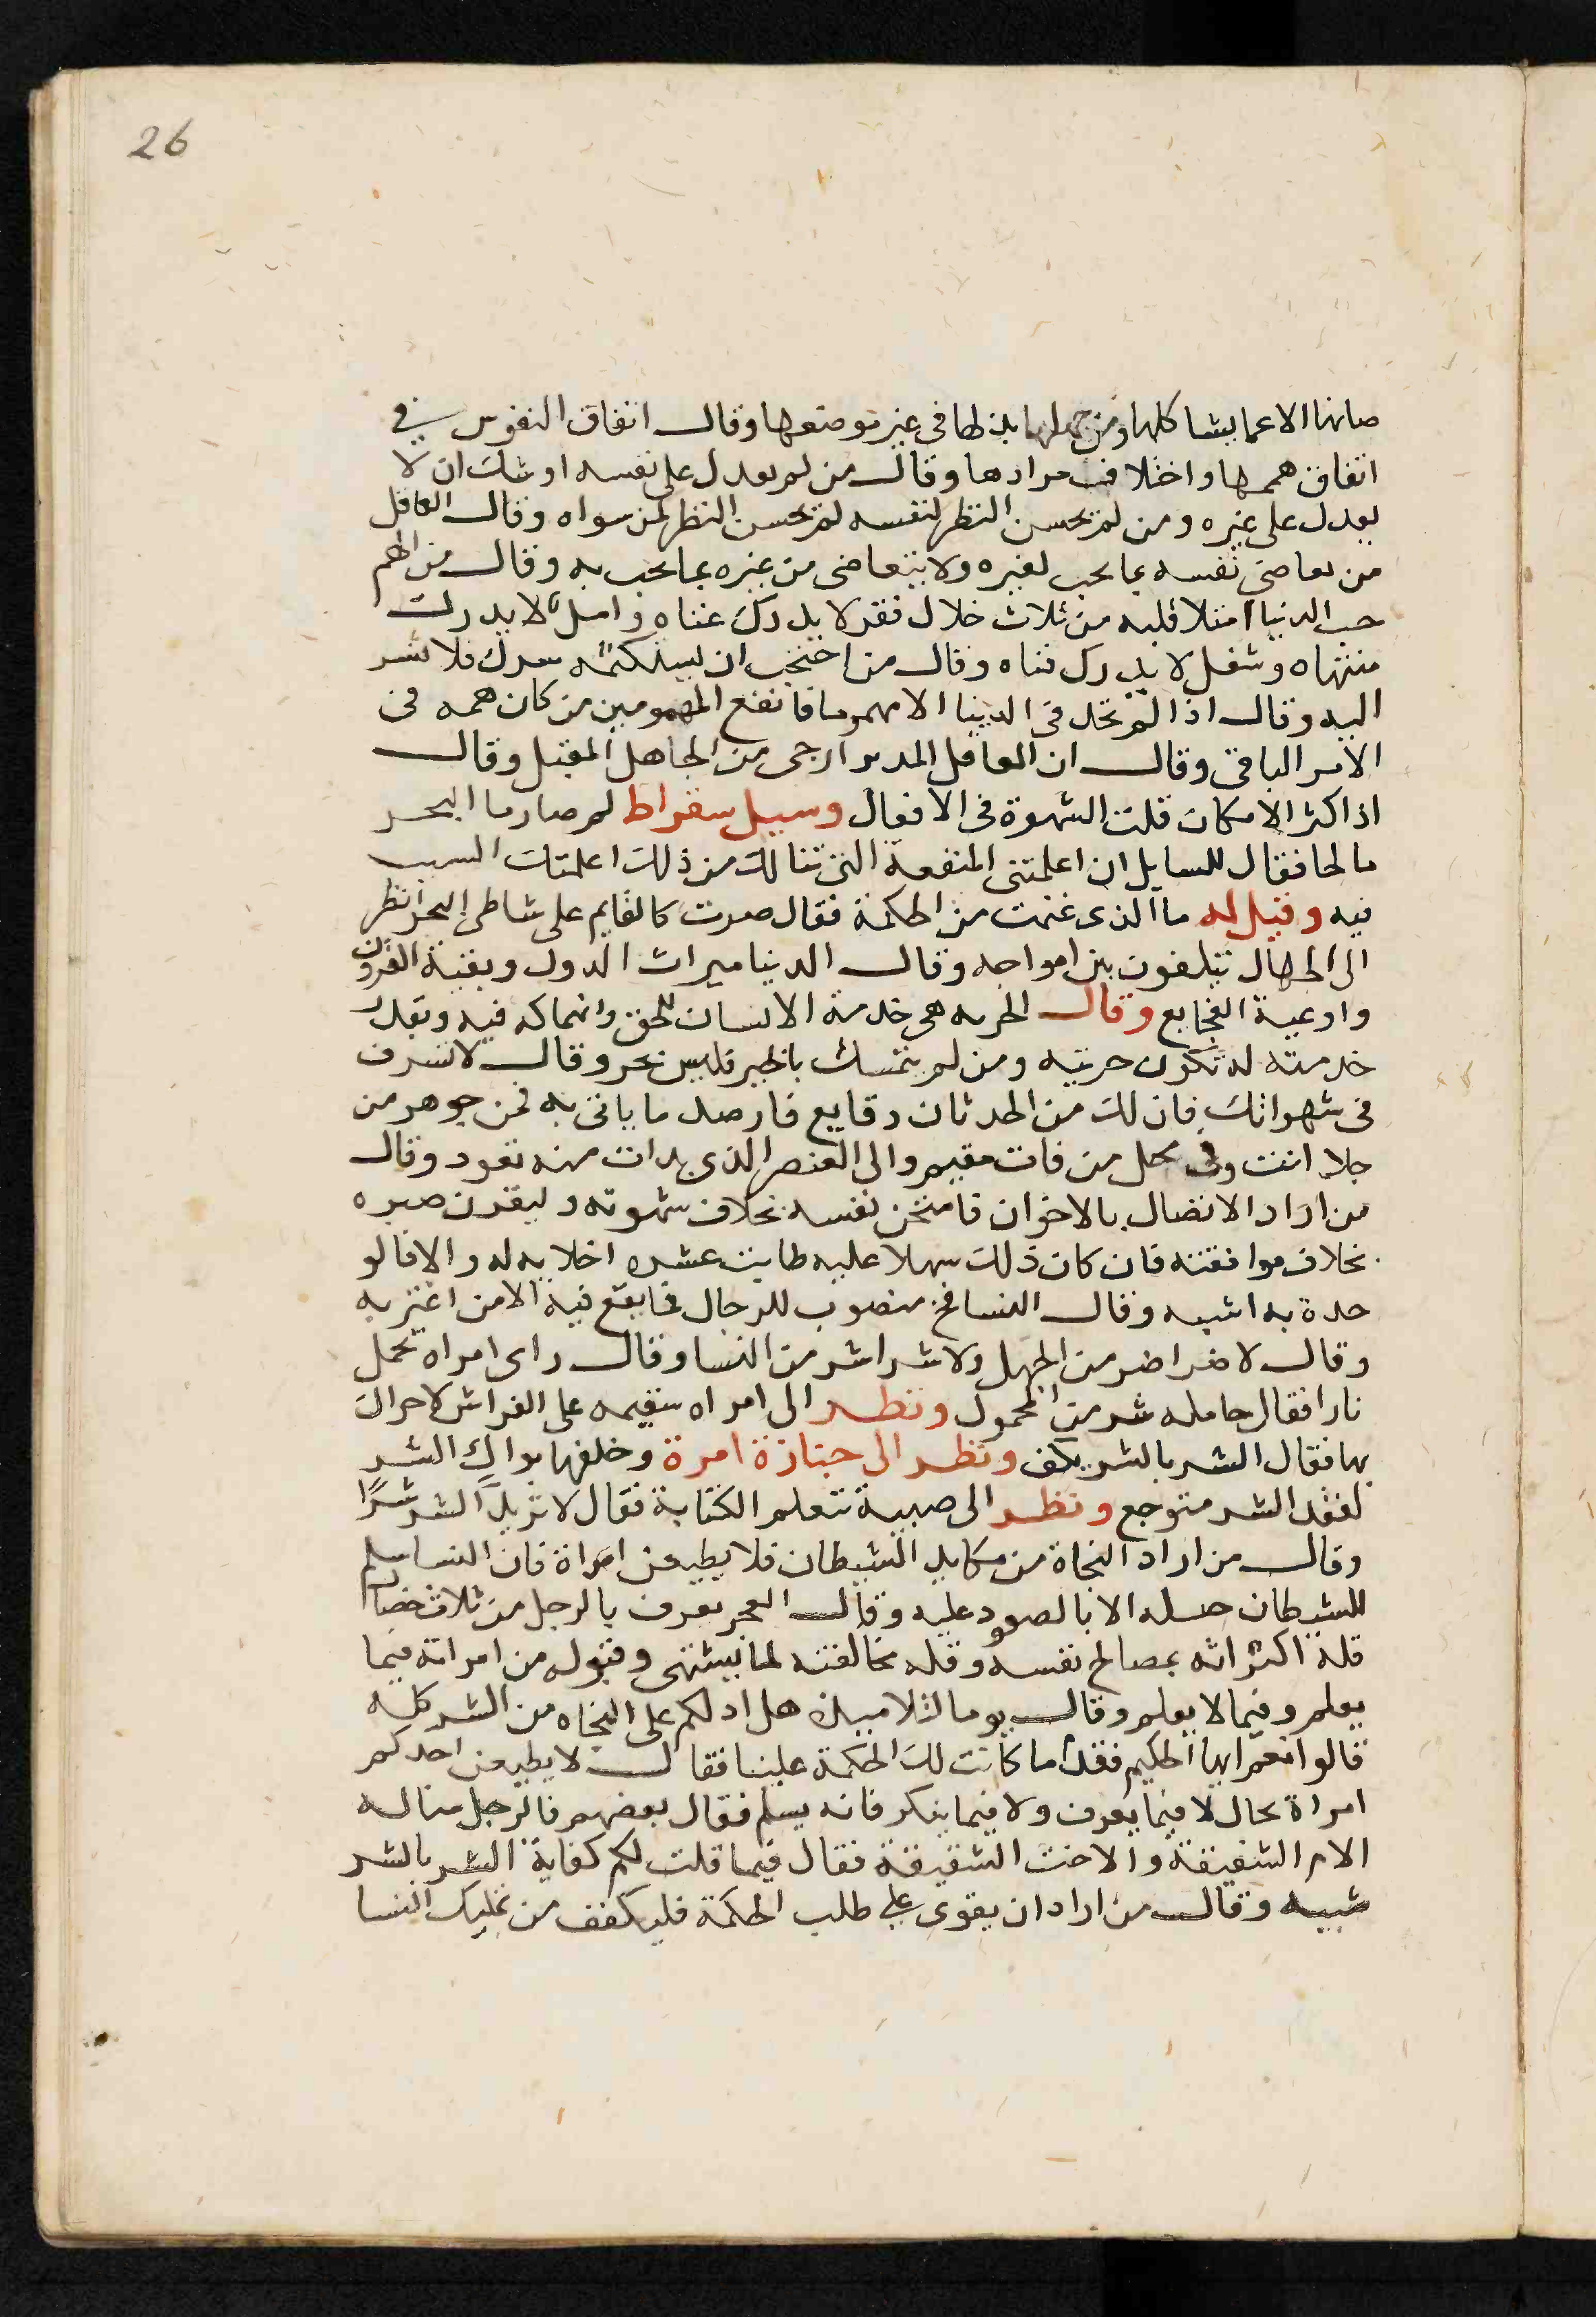 26
صانها الا عما يشاكلها ومن جهلها بذلها في غير موضعها وقال اتفاق النفوس في
اتفاق هممها واختلاف مرادها وقال من لم يعدل على نفسه اوشك ان لا
يعدل على غيره ومن لم يحسن النظر لنفسه لم يحسن النظر لمن سواه وقال العاقل
من تعاضى نفسه بما يجب لغيره ولا يتعاضى من غيره بما يجب به وقال من الهم
حب الدنيا امتلا قلبه من ثلاث خلال فقر لا يدرك غناه وامل لا يدرك
منتهاه وشغل لا يدرك فناه وقال من احتجب ان يستكتمه سرك فلا تشر
اليه وقال اذا لم تجد في الدنيا الا مهموما فانفع المهمومين من كان همه في
الامر الباقي وقال ان العاقل المدبر ارجى من الجاهل المقبل وقال
اذا كثر الامكان قلت الشهوة في الافعال وسيل سقراط لم صار ما البحر
مالحا فقال للسايل ان اعلمتني المنفعة التي تنالك من ذلك اعلمتك السبب
فيه وقيل له ما الذي غنمت من الحكمة فقال صرت كالقايم على شاطى البحر انظر
الى الجهال يتلفون بين امواجه وقال الدنيا ميراث الدول وبقية القرون
واوعية الفجايع وقال الحريه هي خدمة الانسان للحق وانهماكه فيه وبقدر
خدمته له تكون حريته ومن لم يتمسك بالخير فليس بحر وقال لا تسرف
في شهواتك فان لك من الحدثان وقايع فارصد ما ياتى به فمن جوهر من
جلا انت وفى محل من فات مقيم والى العنصر الذي بدات منه تعود وقال
من اراد الاتصال بالاخوان فامتحن نفسه بخلاف شهوته وليقرن صبره
بخلاف موافقته فان كان ذلك سهلا عليه طابت عشره اخلايه له والا فالو
حدة به اشبه وقال النسا فخ منصوب للرجال فما يقع فيه الا من اغتر به
وقال لا ضر اضر من الجهل ولا شر اشر من النسا وقال راى امراه تحمل
نارا فقال حامله شر من المحمول ونظر الى امراه سقيمه على الفراش لا حراك
بها فقال الشر بالشر يكف ونظر الى جنازة امرة وخلفها بواك الشر
لفقد الشر متوجع ونظر الى صبية تتعلم الكتابة فقال لا تزيد الشر شرًا
وقال من اراد النجاة من مكايد الشيطان فلا يطيعن امراة فان النسا سلم
للشيطان حيله الا بالصعود عليه وقال العجر يعرف بالرجل من ثلاث خصال
قلة اكتراثه بمصالح نفسه وقله مخالفته لما يشتهى وقبوله من امراته فيما
يعلم وفيما لا يعلم وقال يوما لتلاميذه هل ادلكم على النجاه من الشر كله
قالوا نعم ايها الحكيم فقد ما كانت لك الحكمة علينا فقال لا يطيعن احدكم
امراة بحال لا فيما يعرف ولا فيما ينكر فانه يسلم فقال بعضهم فالرجل منا له
الام الشفيقة والاخت الشقيقة فقال فيما قلت لكم كفاية الشر بالشر
شبيه وقال من اراد ان يقوى على طلب الحكمة فليكفف من تمليك النسا